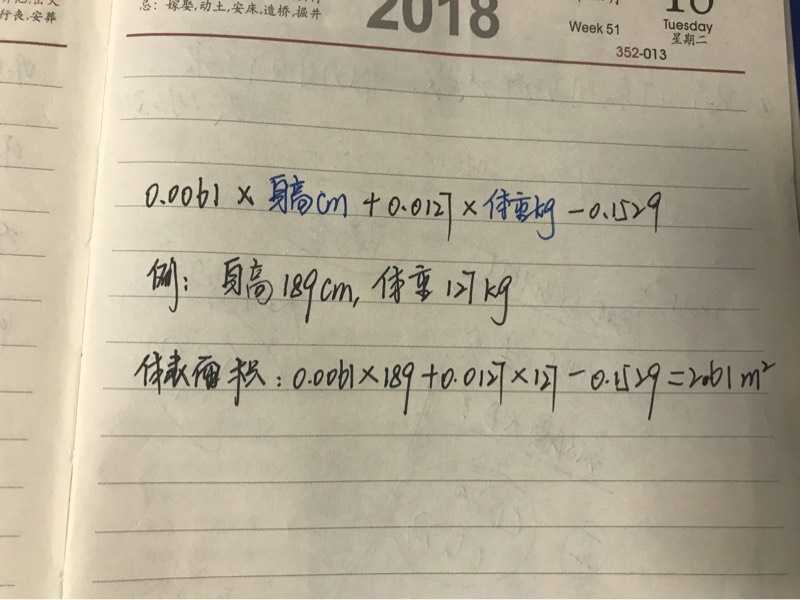 行丧,安葬
忌: 嫁娶,动土,安床,造桥,掘井
2018
Week 51
Tuesday
星期二
352-013
0.0061 × 身高cm + 0.0127 × 体重kg - 0.1529
例: 身高 189cm, 体重 127kg
体表面积: 0.0061×189+0.0127×127-0.1529=2.61m²